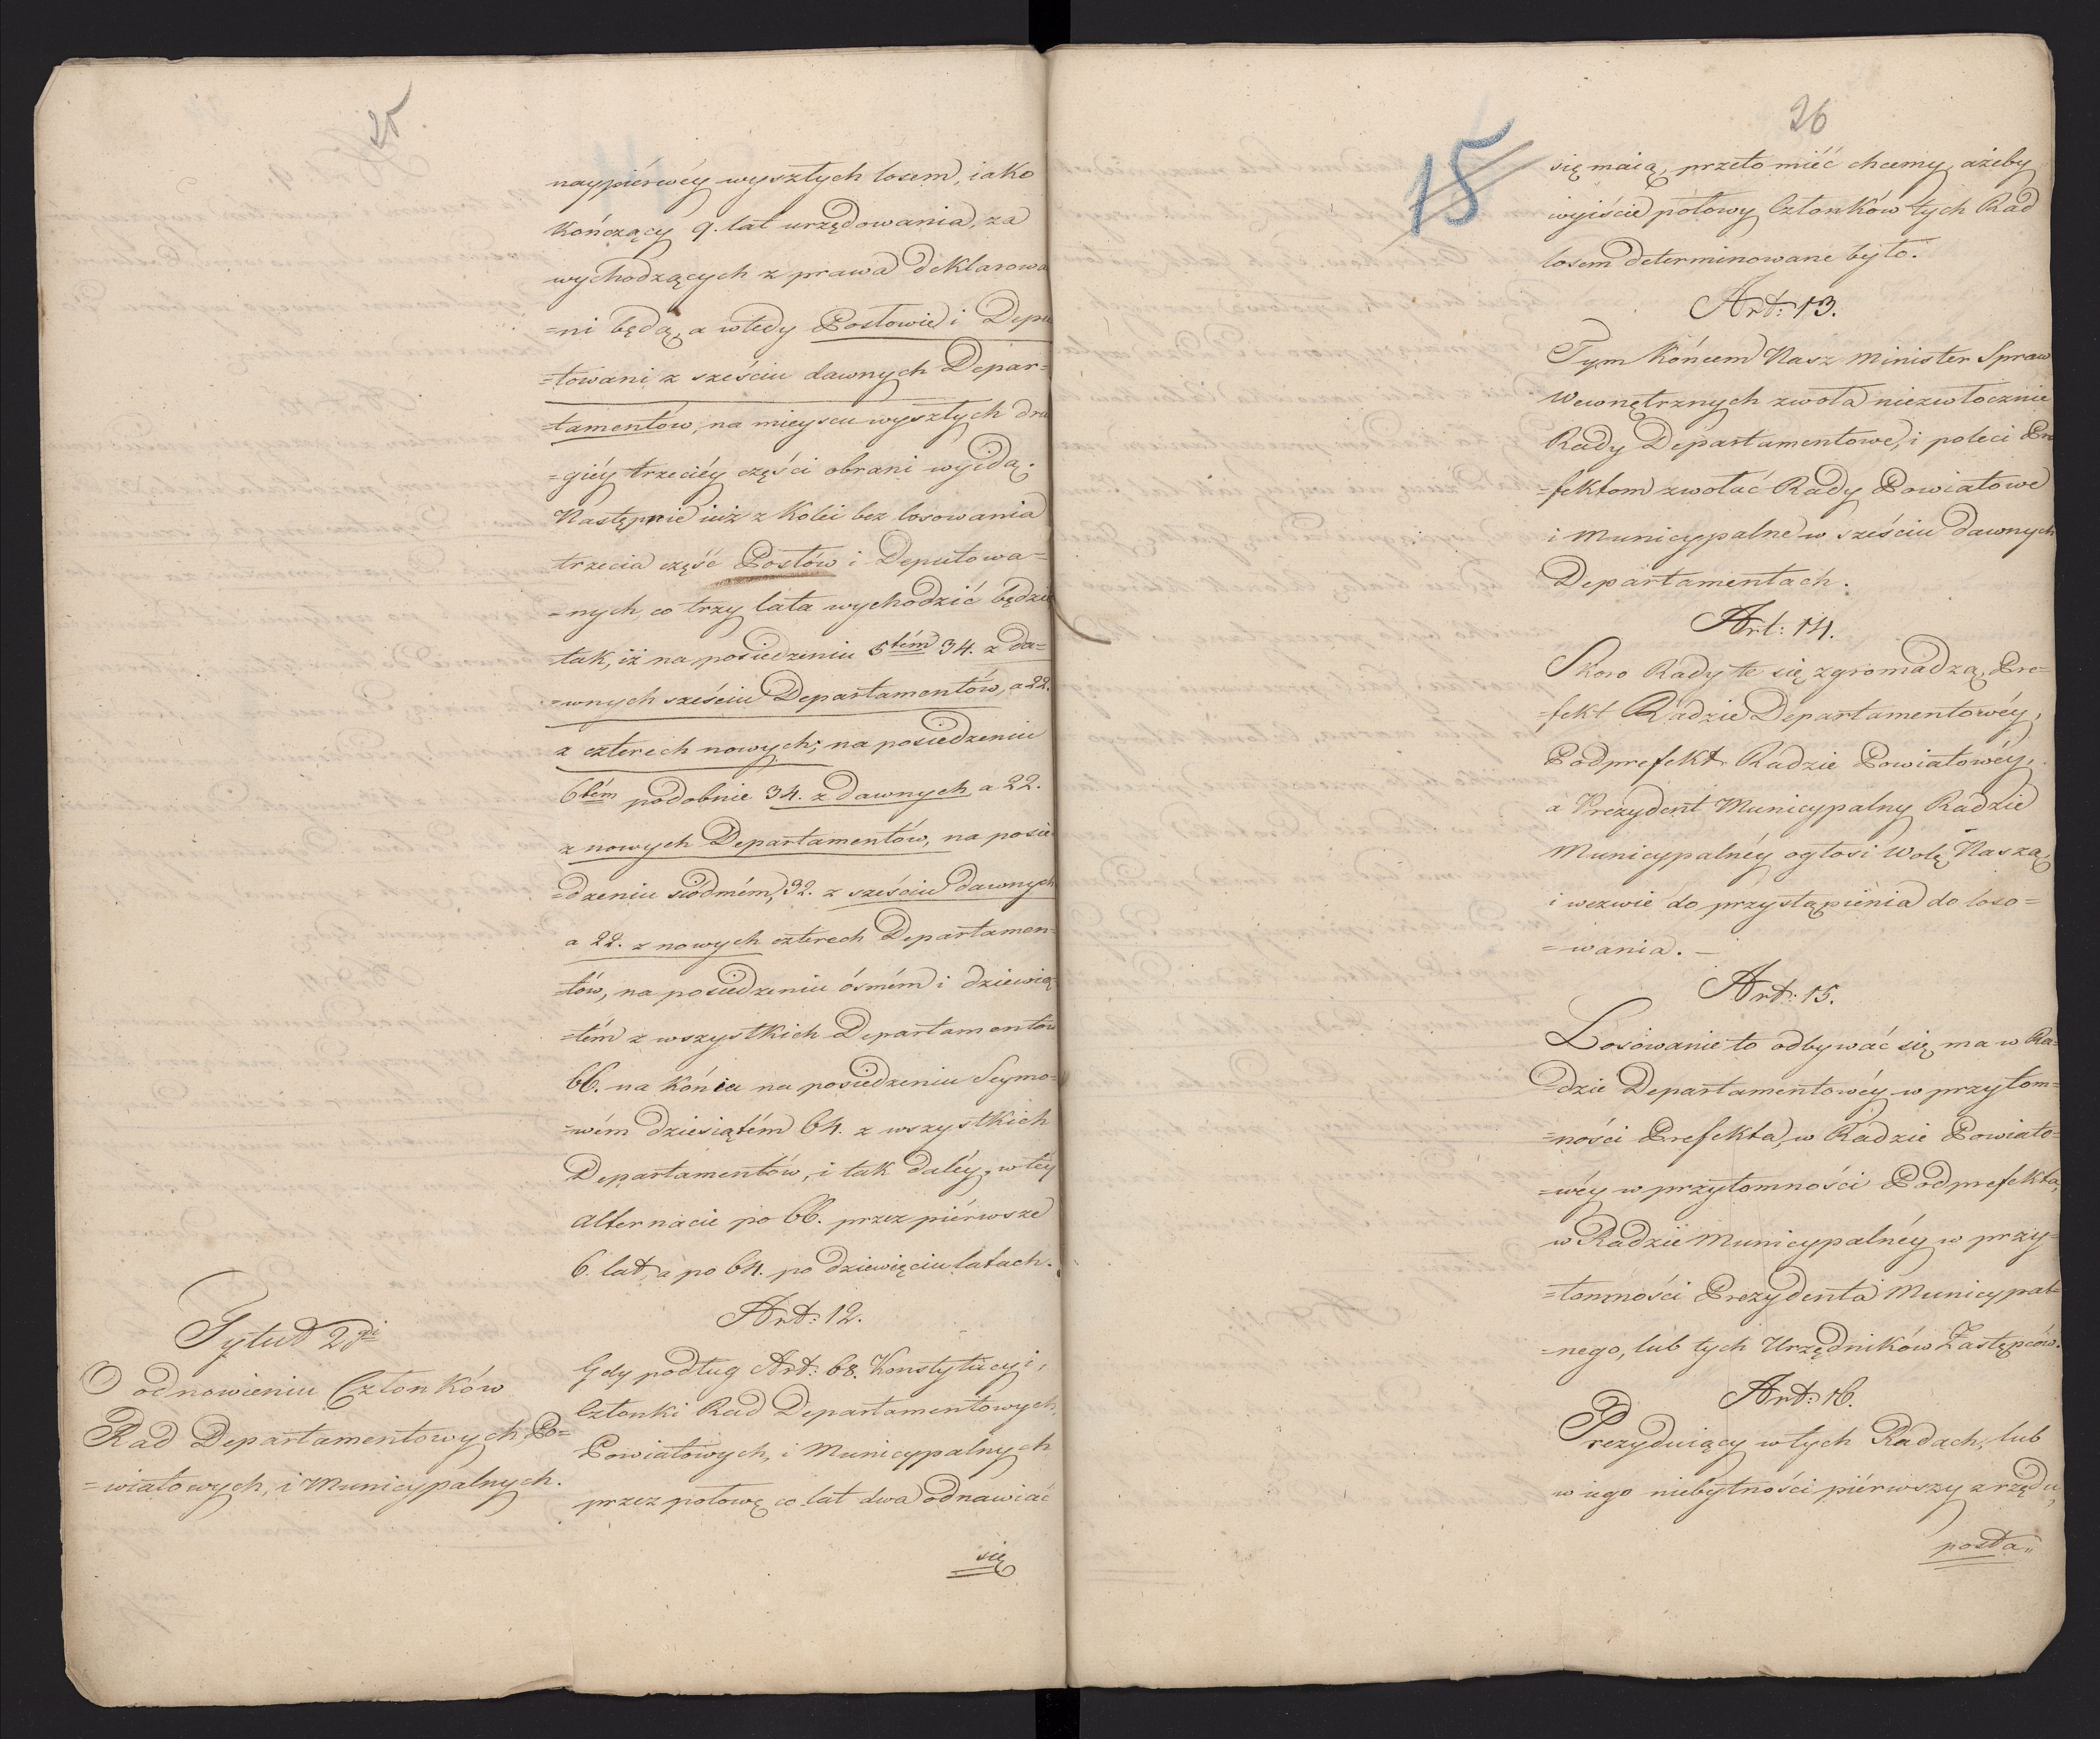 25
naypiérwéy wyszłych losem, iako
kończący 9. lat urzędowania, za
wychodzących z prawa deklarowa
=ni będą, a wtedy Posłowie i Depu
=towani z sześciu dawnych Depar=
=tamentów, na mieyscu wyszłych dru
=giéy trzeciéy części obrani wyidą.
Następnie iuż z kolei bez losowania
trzecia część Posłów i Deputowa=
=nych, co trzy lata wychodzić będzie
tak, iż na posiedzeniu 5tém 34. z da=
=wnych sześciu Departamentów, a 22.
z czterech nowych; na posiedzeniu
6tém podobnie 34. z dawnych a 22.
z nowych Departamentów, na posie
=dzeniu siódmém, 32. z sześciu dawnych
a 22. z nowych czterech Departamen=
=tów, na posiedzeniu ósmém i dziewią
=tém z wszystkich Departamentów
66. na końcu na posiedzeniu Seymo=
=wém dziesiątém 64. z wszystkich
Departamentów, i tak daléy, w téy
alternacie po 66. przez piérwsze
6. lat, a po 64. po dziewięciu latach.
Art: 12.
Tytuł 2gi
O odnowieniu Członków
Rad Departamentowych, Po=
=wiatowych, i Municypalnych.
Gdy podług Art: 68. Konstytucyi,
Członki Rad Departamentowych,
Powiatowych, i Municypalnych
przez połowę co lat dwa odnawiać
się
15
26
się maią, przeto mieć chcemy, ażeby
wyiście połowy Członków tych Rad
losem determinowane było.
Art: 13.
Tym końcem Nasz Minister Spraw
Wewnętrznych zwoła niezwłocznie
Rady Departamentowe, i poleci Pre
=fektom zwołać Rady Powiatowe
i Municypalne w sześciu dawnych
Departamentach.
Art: 14.
Skoro Rady te się zgromadzą, Pre=
=fekt Radzie Departamentowéy,
Podprefekt Radzie Powiatowéy,
a Prezydent Municypalny Radzie
Municypalnéy ogłosi Wolę Naszą,
i wezwie do przystąpienia do loso=
=wania. –
Art: 15.
Losowanie to odbywać się ma w Ra=
=dzie Departamentowéy w przytom=
=ności Prefekta, w Radzie Powiato=
=wéy w przytomności Podprefekta,
w Radzie Municypalnéy w przy=
=tomności Prezydenta Municypal=
=nego, lub tych Urzędników Zastępców.
Art: 16.
Prezyduiący w tych Radach, lub
w iego niebytności piérwszy z rzędu,
posta=